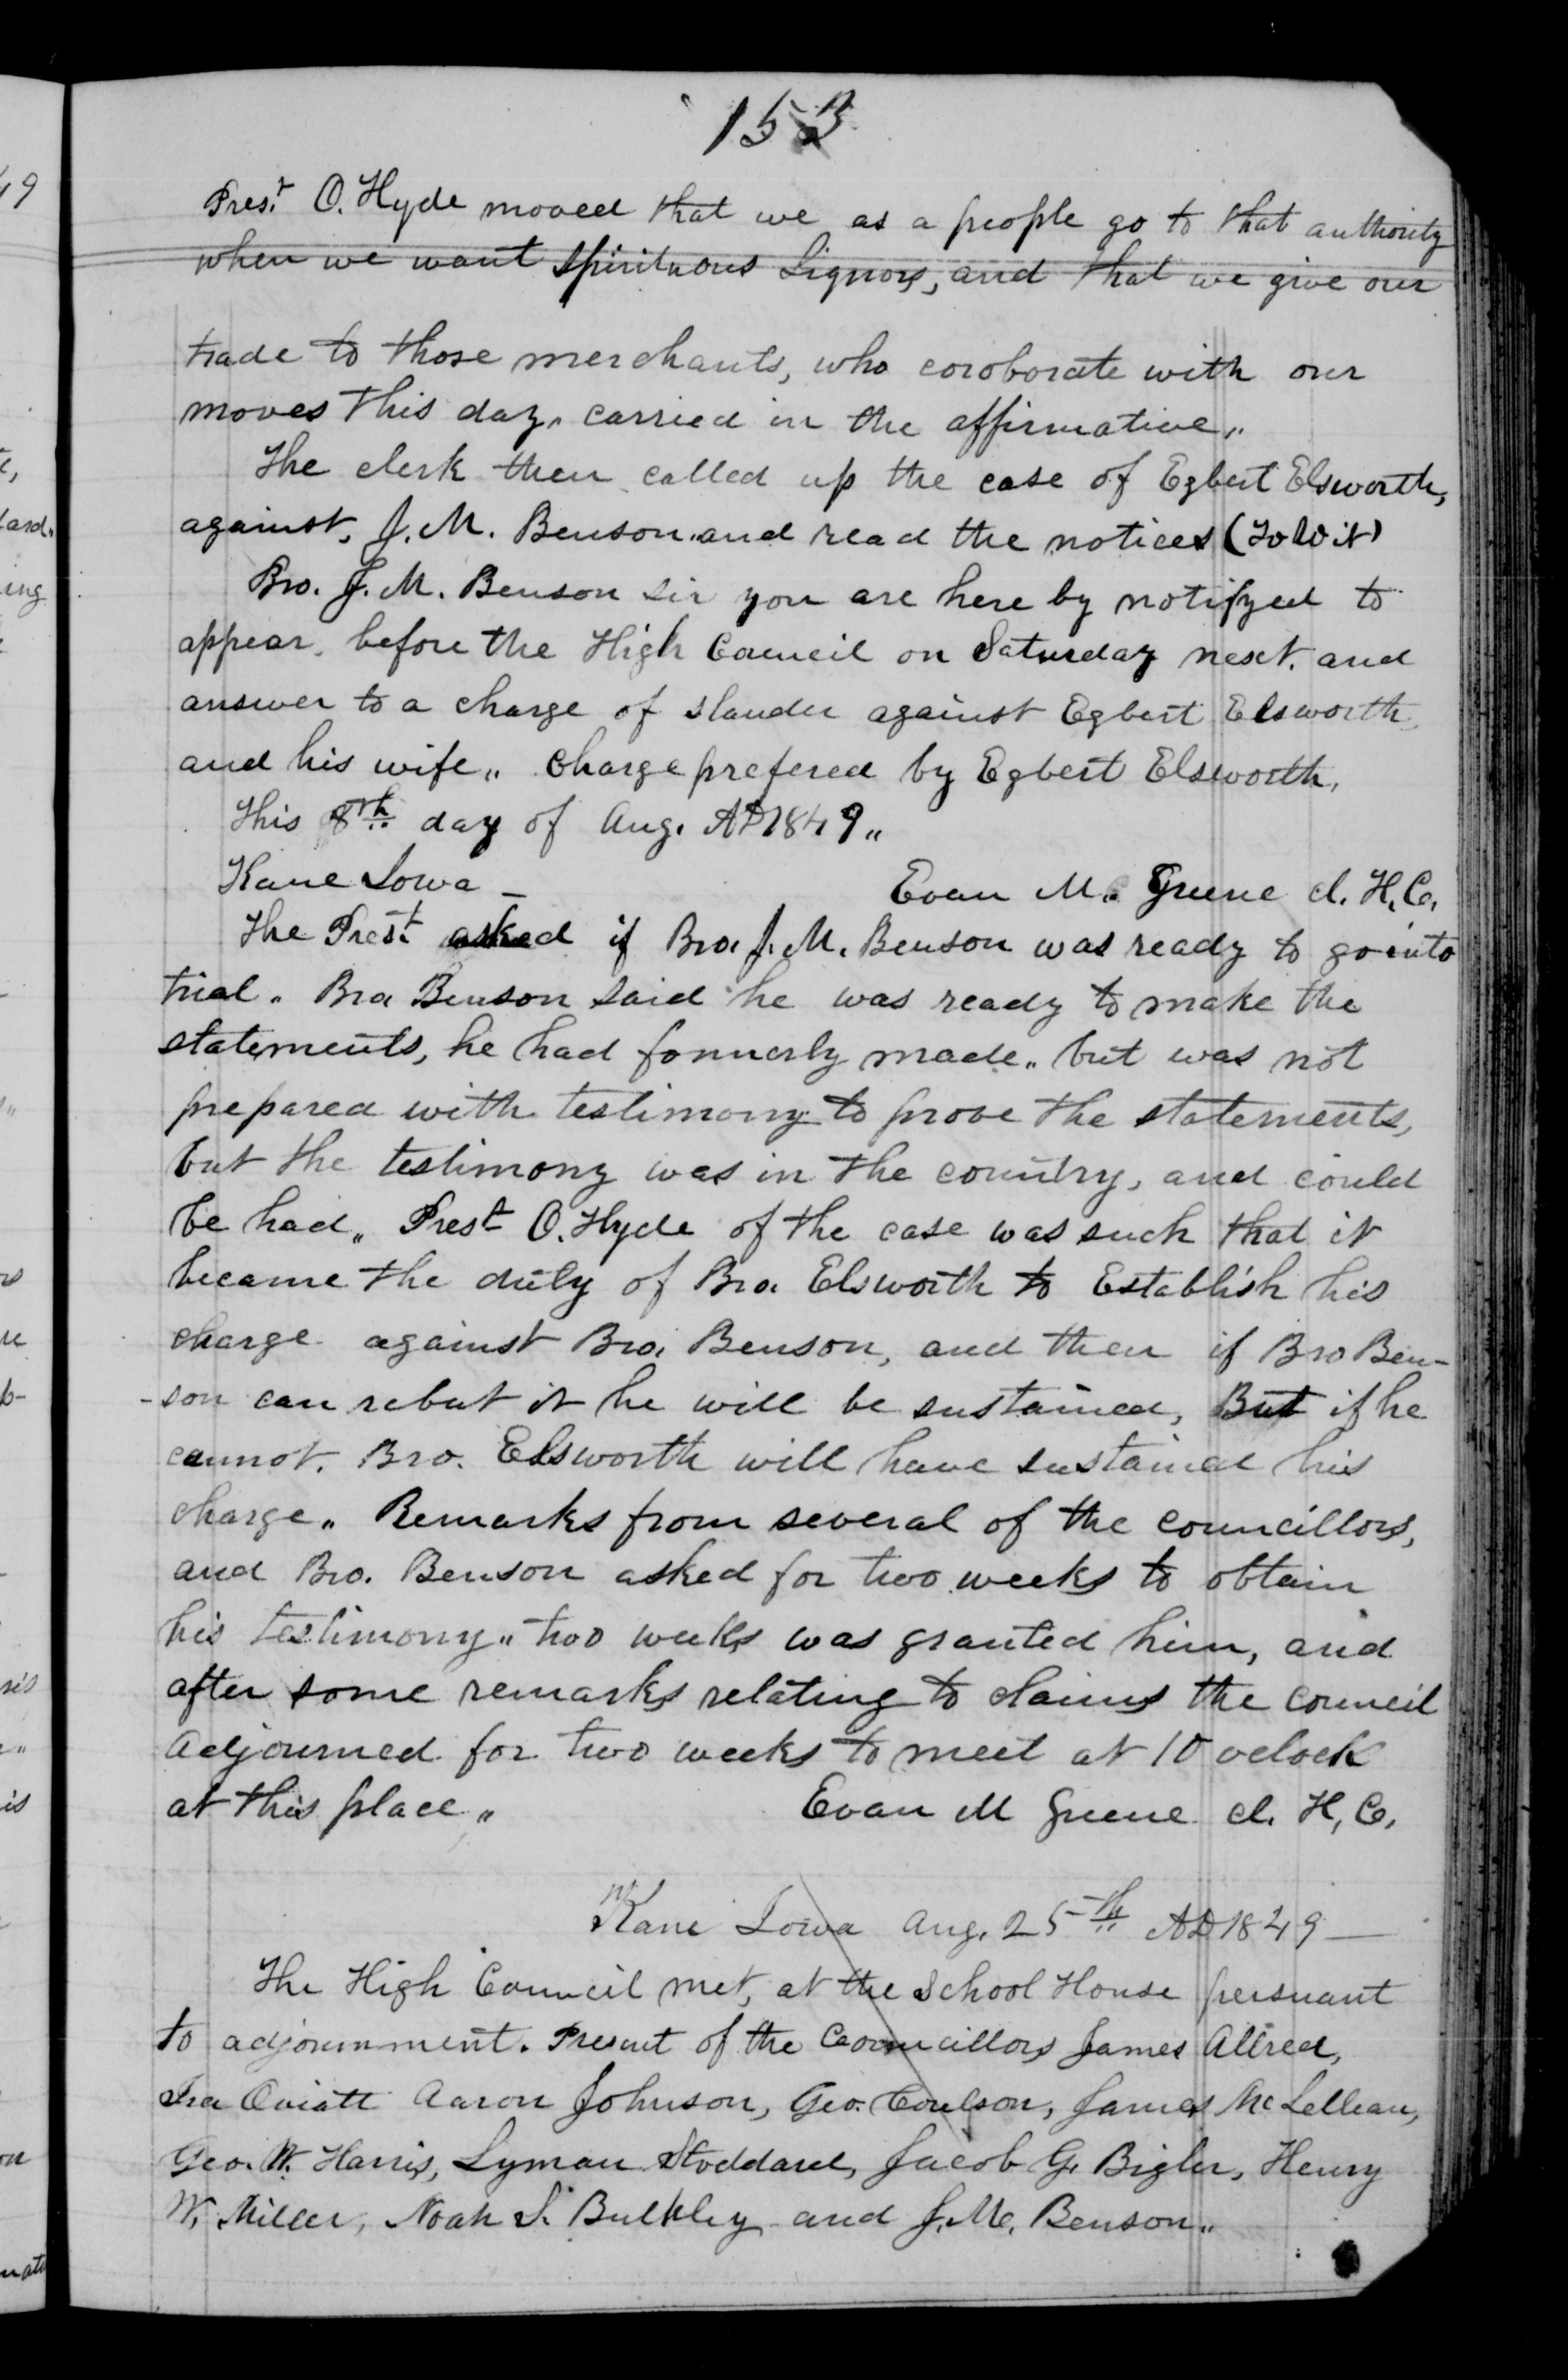 153
Prest. O. Hyde moved that we as a people go to that authority
when we want Spirituous Liquors, and that we give our
trade to those merchants, who coroborate with our
moves this day. carried in the affirmative„
The clerk then called up the case of Egbert Elsworth,
against, J. M. Benson, and read the notices (To Wit)
Bro. J. M. Benson sir you are here by notifyed to
appear, before the High Council on Saturday next. and
answer to a charge of slander against Egbert Elsworth
and his wife„ Charge prefered by Egbert Elsworth,
This 8th day of Aug. AD 1849„
Kane Iowa –
Evan M. Greene cl. H. Co.
The Prest. asked if Bro. J. M. Benson was ready to go into
trial„ Bro Benson said he was ready to make the
statements, he had formerly made„ but was not
prepared with testimony to prove the statements,
but the testimony was in the country, and could
be had„ Prest O. Hyde of the case was such that it
became the duty of Bro. Elsworth to Establish his
charge against Bro. Benson, and then if Bro Ben-
-son can rebut it he will be sustained, But if he
cannot. Bro. Elsworth will have sustained his
charge„ Remarks from several of the councillors,
and Bro. Benson asked for two weeks to obtain
his testimony„ two weeks was granted him, and
after some remarks relating to claims the council
adjourned for two weeks to meet at 10 oclock
at this place„
Evan M Greene cl. H, Co,
Kane Iowa Aug. 25th AD 1849 —
The High Council met, at the School House persuant
to adjournment. Present of the Councillors James Allred,
Ira Oviatt Aaron Johnson, Geo. Coulson, James McLellean,
Geo. W. Harris, Lyman Stoddard, Jacob G. Bigler, Henry
W. Miller, Noah S. Bulkley and J. M. Benson„